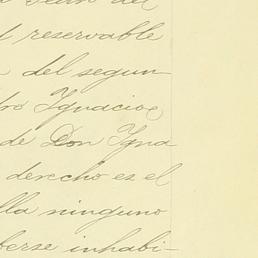 del
reservable
del segun-
dro Ignacio
de Don Igna
derecho es el
lla ninguno
berse inhabi-